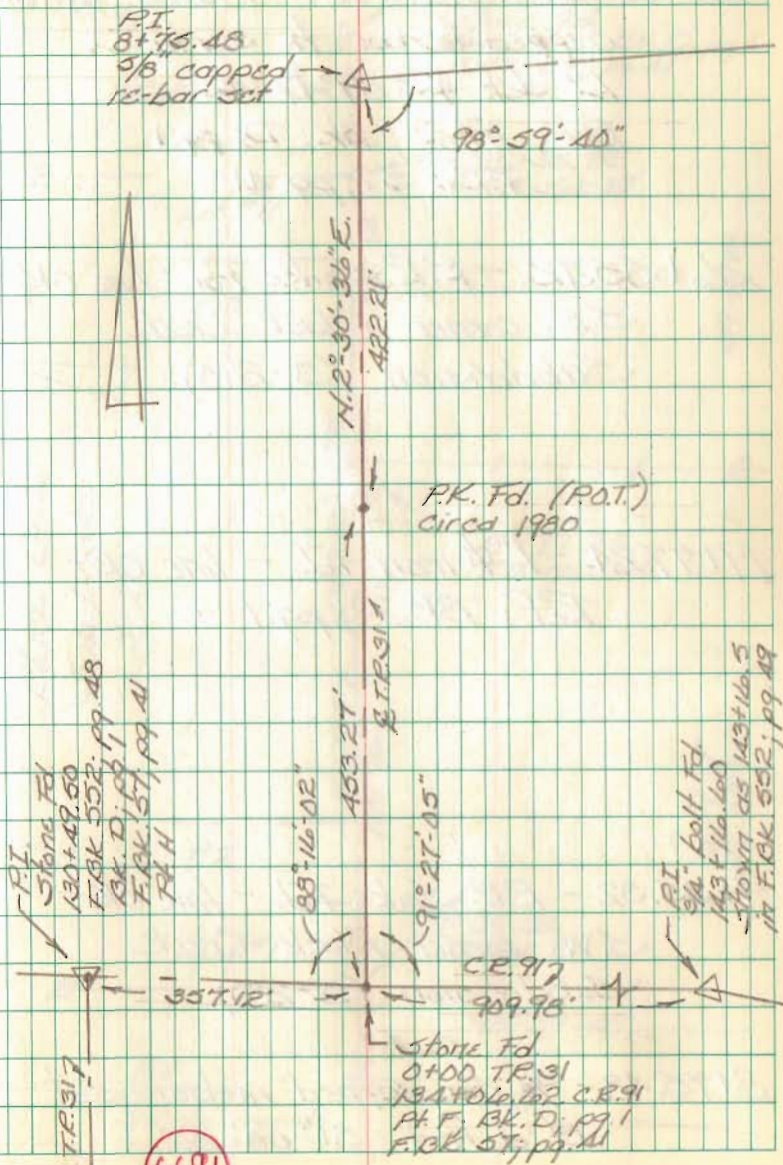 P.I.
8+75.48
5/8" capped
re-bar set
98°-59'-40"
N.2°-30'-36"E.
422.21'
P.K. Fd. (P.O.T.)
Circa 1980
453.27'
℄ T.R.31
88°-16'-02"
91°-27'-05"
P.I.
Stone Fd.
130+49.50
F.BK 552; pg. 48
BK. D; pg. 1
F.BK. 57; pg. 41
Pt. H
P.I.
3/4" bolt Fd.
143+16.60
Shown as 143+16.5
in F.BK 552; pg. 49
C.R.91
357.12'
909.98'
Stone Fd.
0+00 T.R.31
134+06.62 C.R.91
Pt. F; BK. D; pg. 1
F.BK. 57; pg. 41
T.R.31